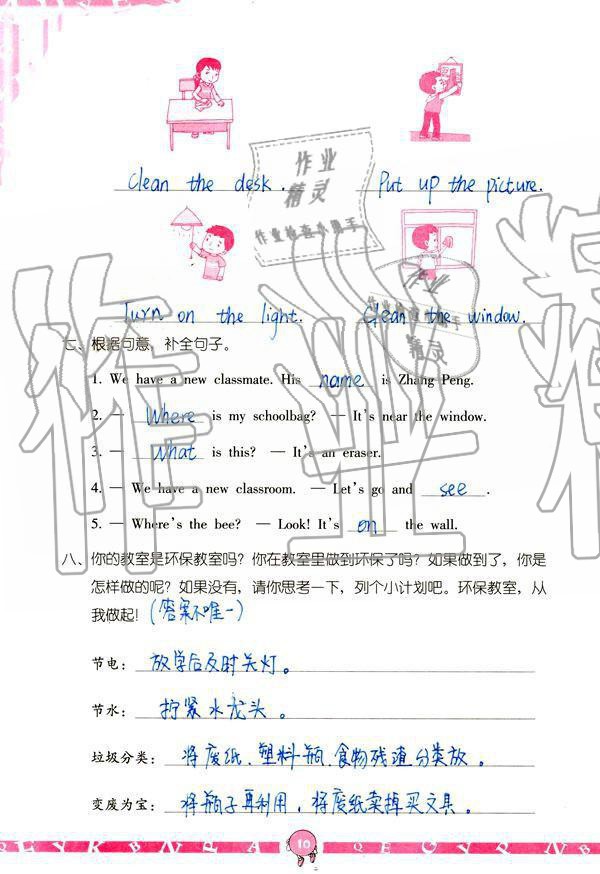 Clean the desk. Put up the picture.
Turn on the light. Clean the window.
七、根据句意，补全句子。
1. We have a new classmate. His name is Zhang Peng.
2. — Where is my schoolbag? — It's near the window.
3. — What is this? — It's an eraser.
4. — We have a new classroom. — Let's go and see.
5. — Where's the bee? — Look! It's on the wall.
八、你的教室是环保教室吗？你在教室里做到环保了吗？如果做到了，你是
怎样做的呢？如果没有，请你思考一下，列个小计划吧。环保教室，从
我做起！(答案不唯一)
节电：放学后及时关灯。
节水：拧紧水龙头。
垃圾分类：将废纸、塑料瓶、食物残渣分类放。
变废为宝：将瓶子再利用，将废纸卖掉买文具。
10
作业
精灵
作业检查小助手
作业
精灵
作业检查小助手
作业